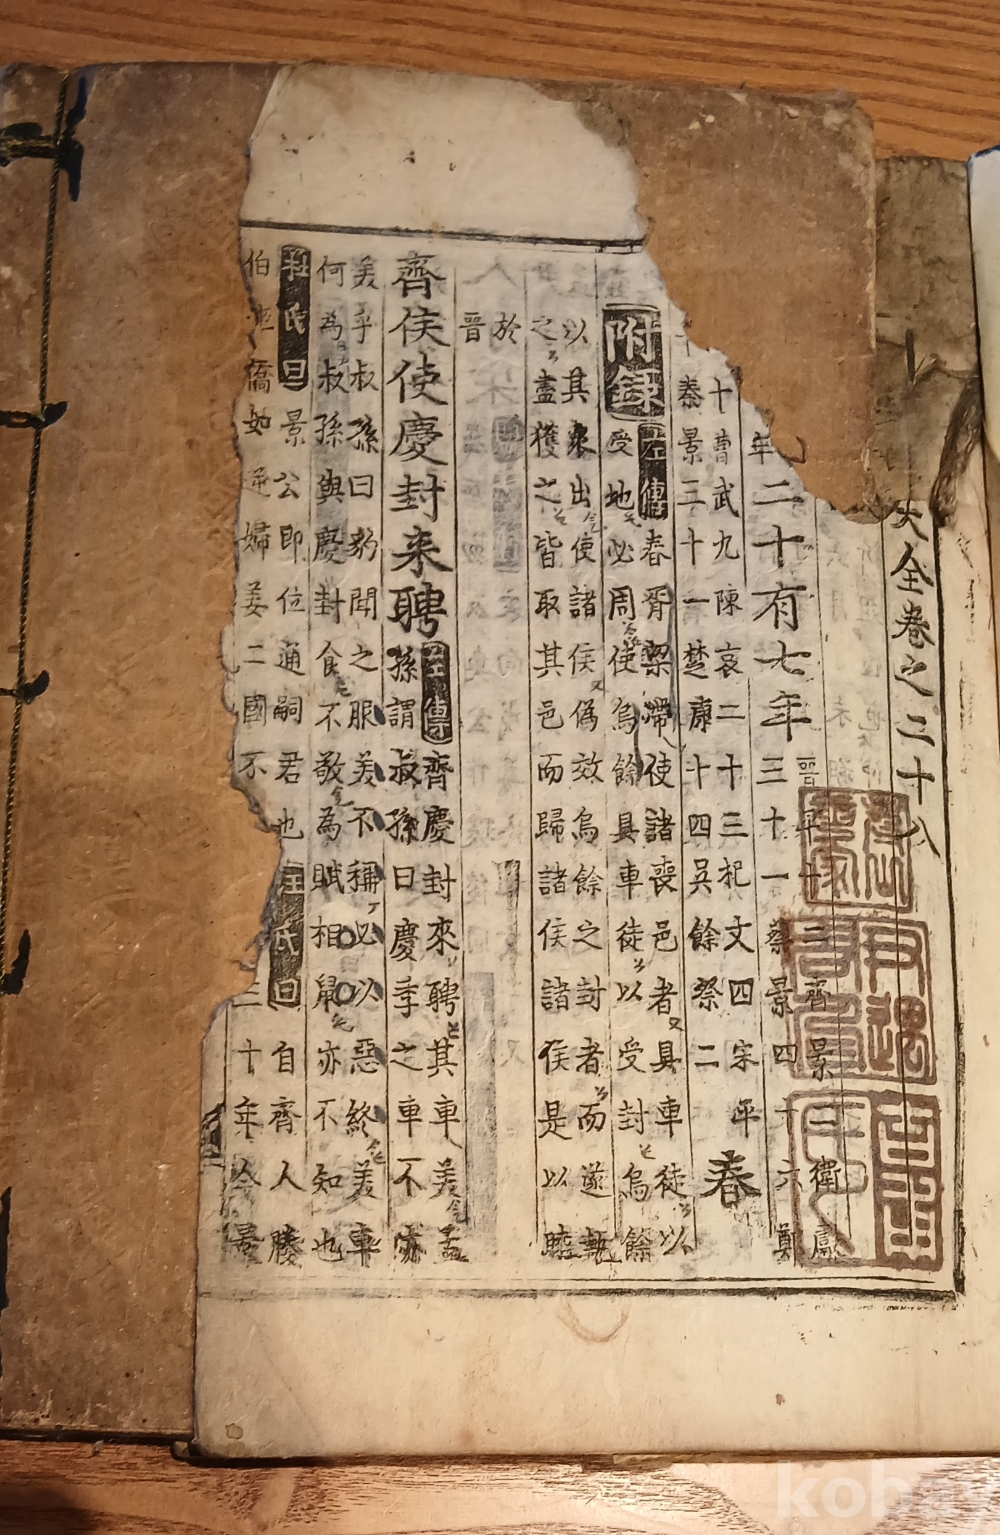 大全卷之二十八
二十有七年
晉平十二齊景二衛獻
三十一蔡景四十六鄭
十曹武九陳哀二十三杞文四宋平
年秦景三十一楚康十四吳餘祭二
春
附録
左傳
春胥梁帶使諸喪邑者具車徒以
受地必周使烏餘具車徒以受封烏餘
以其衆出使諸侯偽效烏餘之封者而遂執
之盡獲之皆取其邑而歸諸侯諸侯是以睦
於
晉
齊侯使慶封来聘
左傳
齊慶封來聘其車美孟
孫謂叔孫曰慶季之車不亦
美乎叔孫曰豹聞之服美不稱必以惡終美車
何為叔孫與慶封食不敬為賦相鼠亦不知也
杜氏曰
景公即位通嗣君也
汪氏曰
自齊人媵
伯姬僑如逆婦姜二國不
三十年今景
kobay